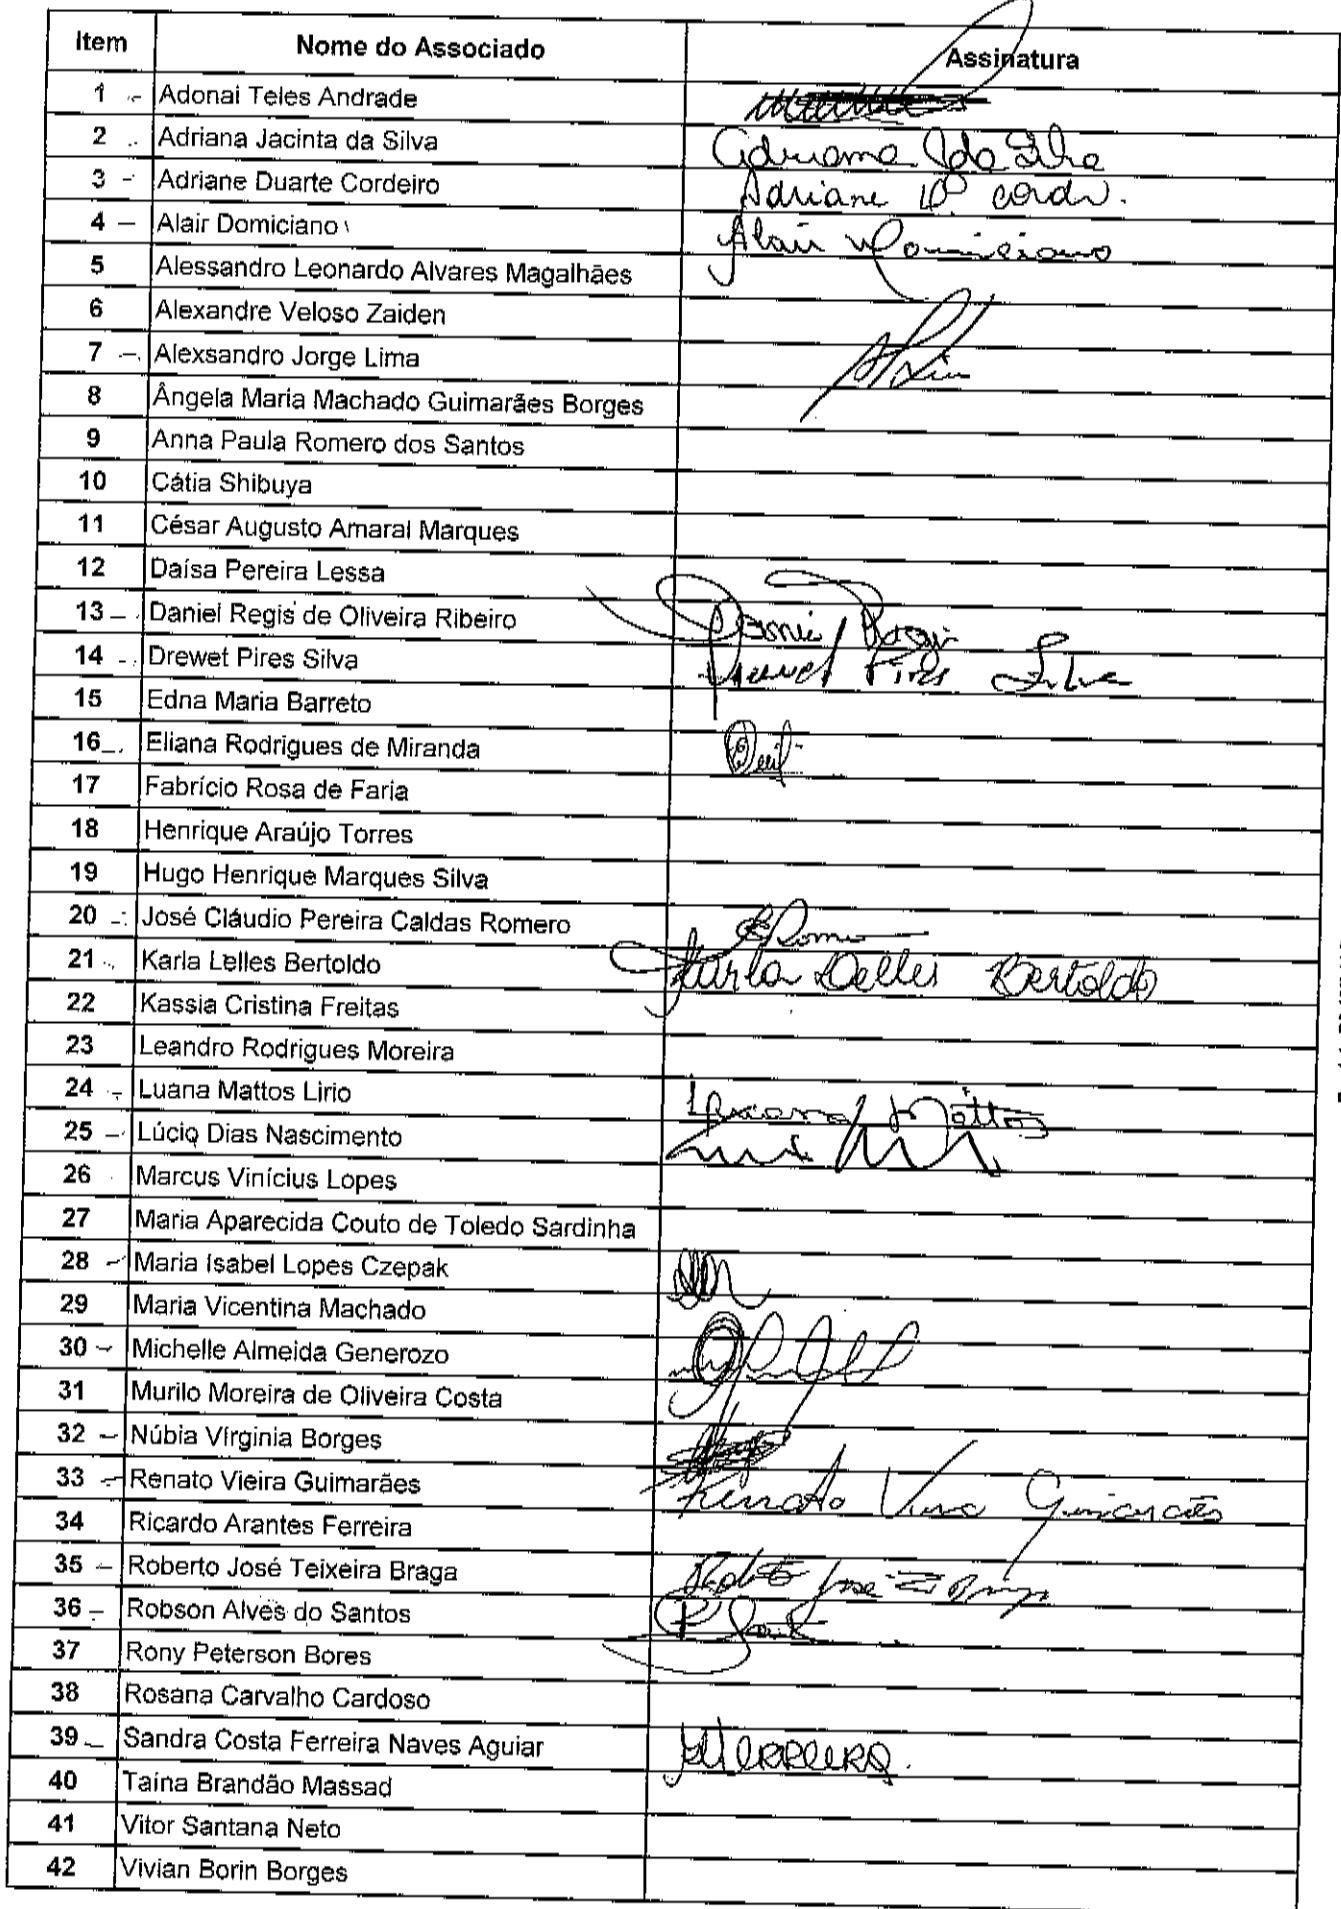 Item Nome do Associado Assinatura
1 Adonai Teles Andrade
2 Adriana Jacinta da Silva Adriana J da Silva
3 Adriane Duarte Cordeiro Adriane D. Cord.
4 Alair Domiciano Alair Domiciano
5 Alessandro Leonardo Alvares Magalhães
6 Alexandre Veloso Zaiden
7 Alexsandro Jorge Lima
8 Ângela Maria Machado Guimarães Borges
9 Anna Paula Romero dos Santos
10 Cátia Shibuya
11 César Augusto Amaral Marques
12 Daísa Pereira Lessa
13 Daniel Regis de Oliveira Ribeiro Daniel Regi
14 Drewet Pires Silva Drewet Pires Silva
15 Edna Maria Barreto
16 Eliana Rodrigues de Miranda
17 Fabrício Rosa de Faria
18 Henrique Araújo Torres
19 Hugo Henrique Marques Silva
20 José Cláudio Pereira Caldas Romero
21 Karla Lelles Bertoldo Karla Lelles Bertoldo
22 Kassia Cristina Freitas
23 Leandro Rodrigues Moreira
24 Luana Mattos Lirio Luana Mattos
25 Lúcio Dias Nascimento
26 Marcus Vinícius Lopes
27 Maria Aparecida Couto de Toledo Sardinha
28 Maria Isabel Lopes Czepak
29 Maria Vicentina Machado
30 Michelle Almeida Generozo
31 Murilo Moreira de Oliveira Costa
32 Núbia Vírginia Borges
33 Renato Vieira Guimarães Renato Vieira Guimarães
34 Ricardo Arantes Ferreira
35 Roberto José Teixeira Braga Roberto José T. Braga
36 Robson Alves do Santos
37 Rony Peterson Bores
38 Rosana Carvalho Cardoso
39 Sandra Costa Ferreira Naves Aguiar
40 Taína Brandão Massad
41 Vitor Santana Neto
42 Vivian Borin Borges